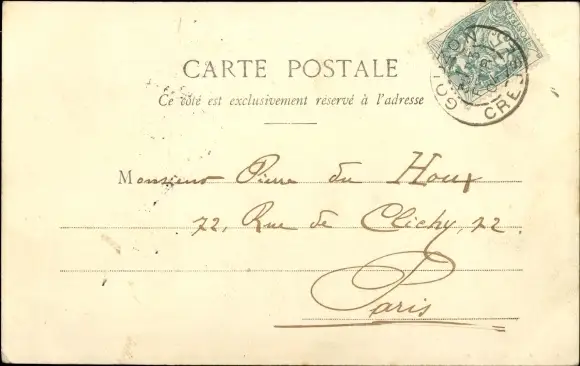 CARTE POSTALE
Ce côté est exclusivement réservé à l'adresse
Monsieur Pierre du Houx
72, Rue de Clichy, 72
Paris